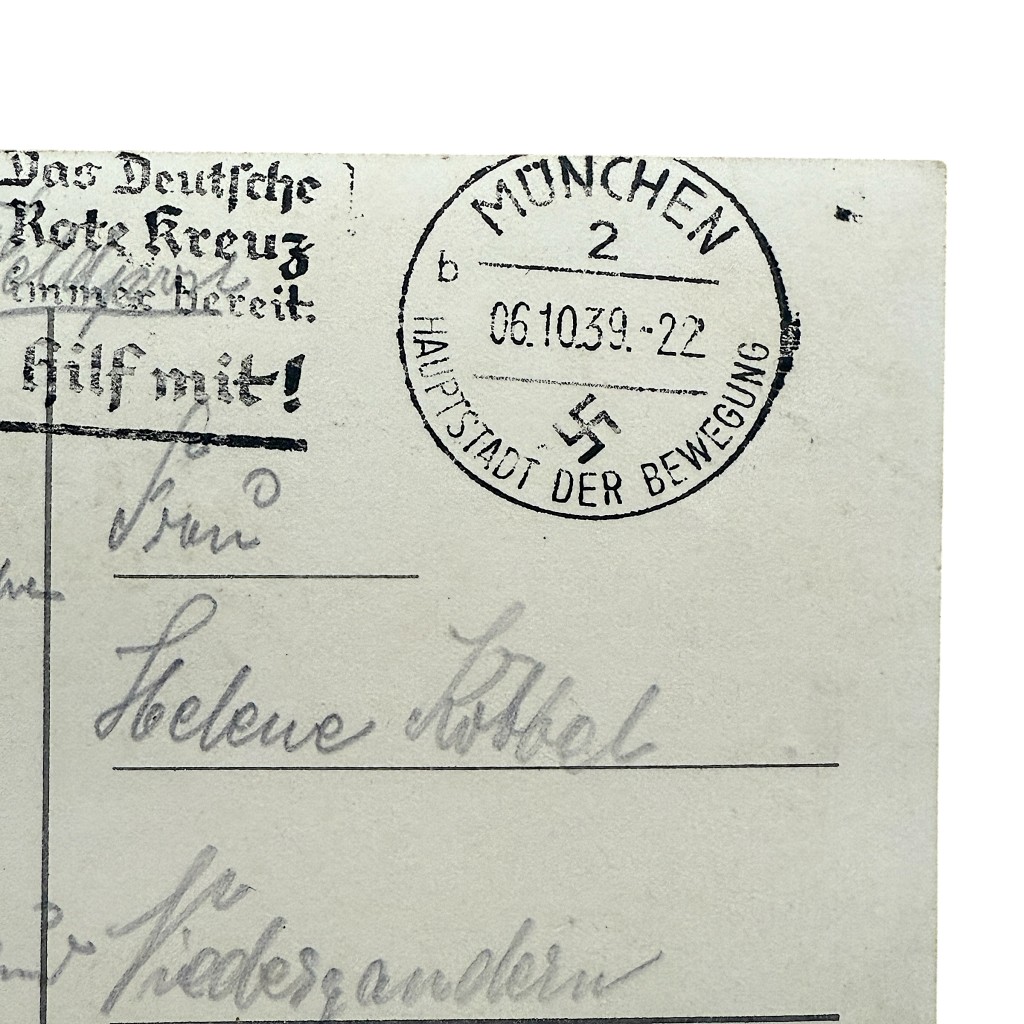 Das Deutsche
Rote Kreuz
immer bereit.
Hilf mit!
Feldpost
MÜNCHEN
2
b
06.10.39.-22
HAUPTSTADT DER BEWEGUNG
Frau
Helene
Niedergandern